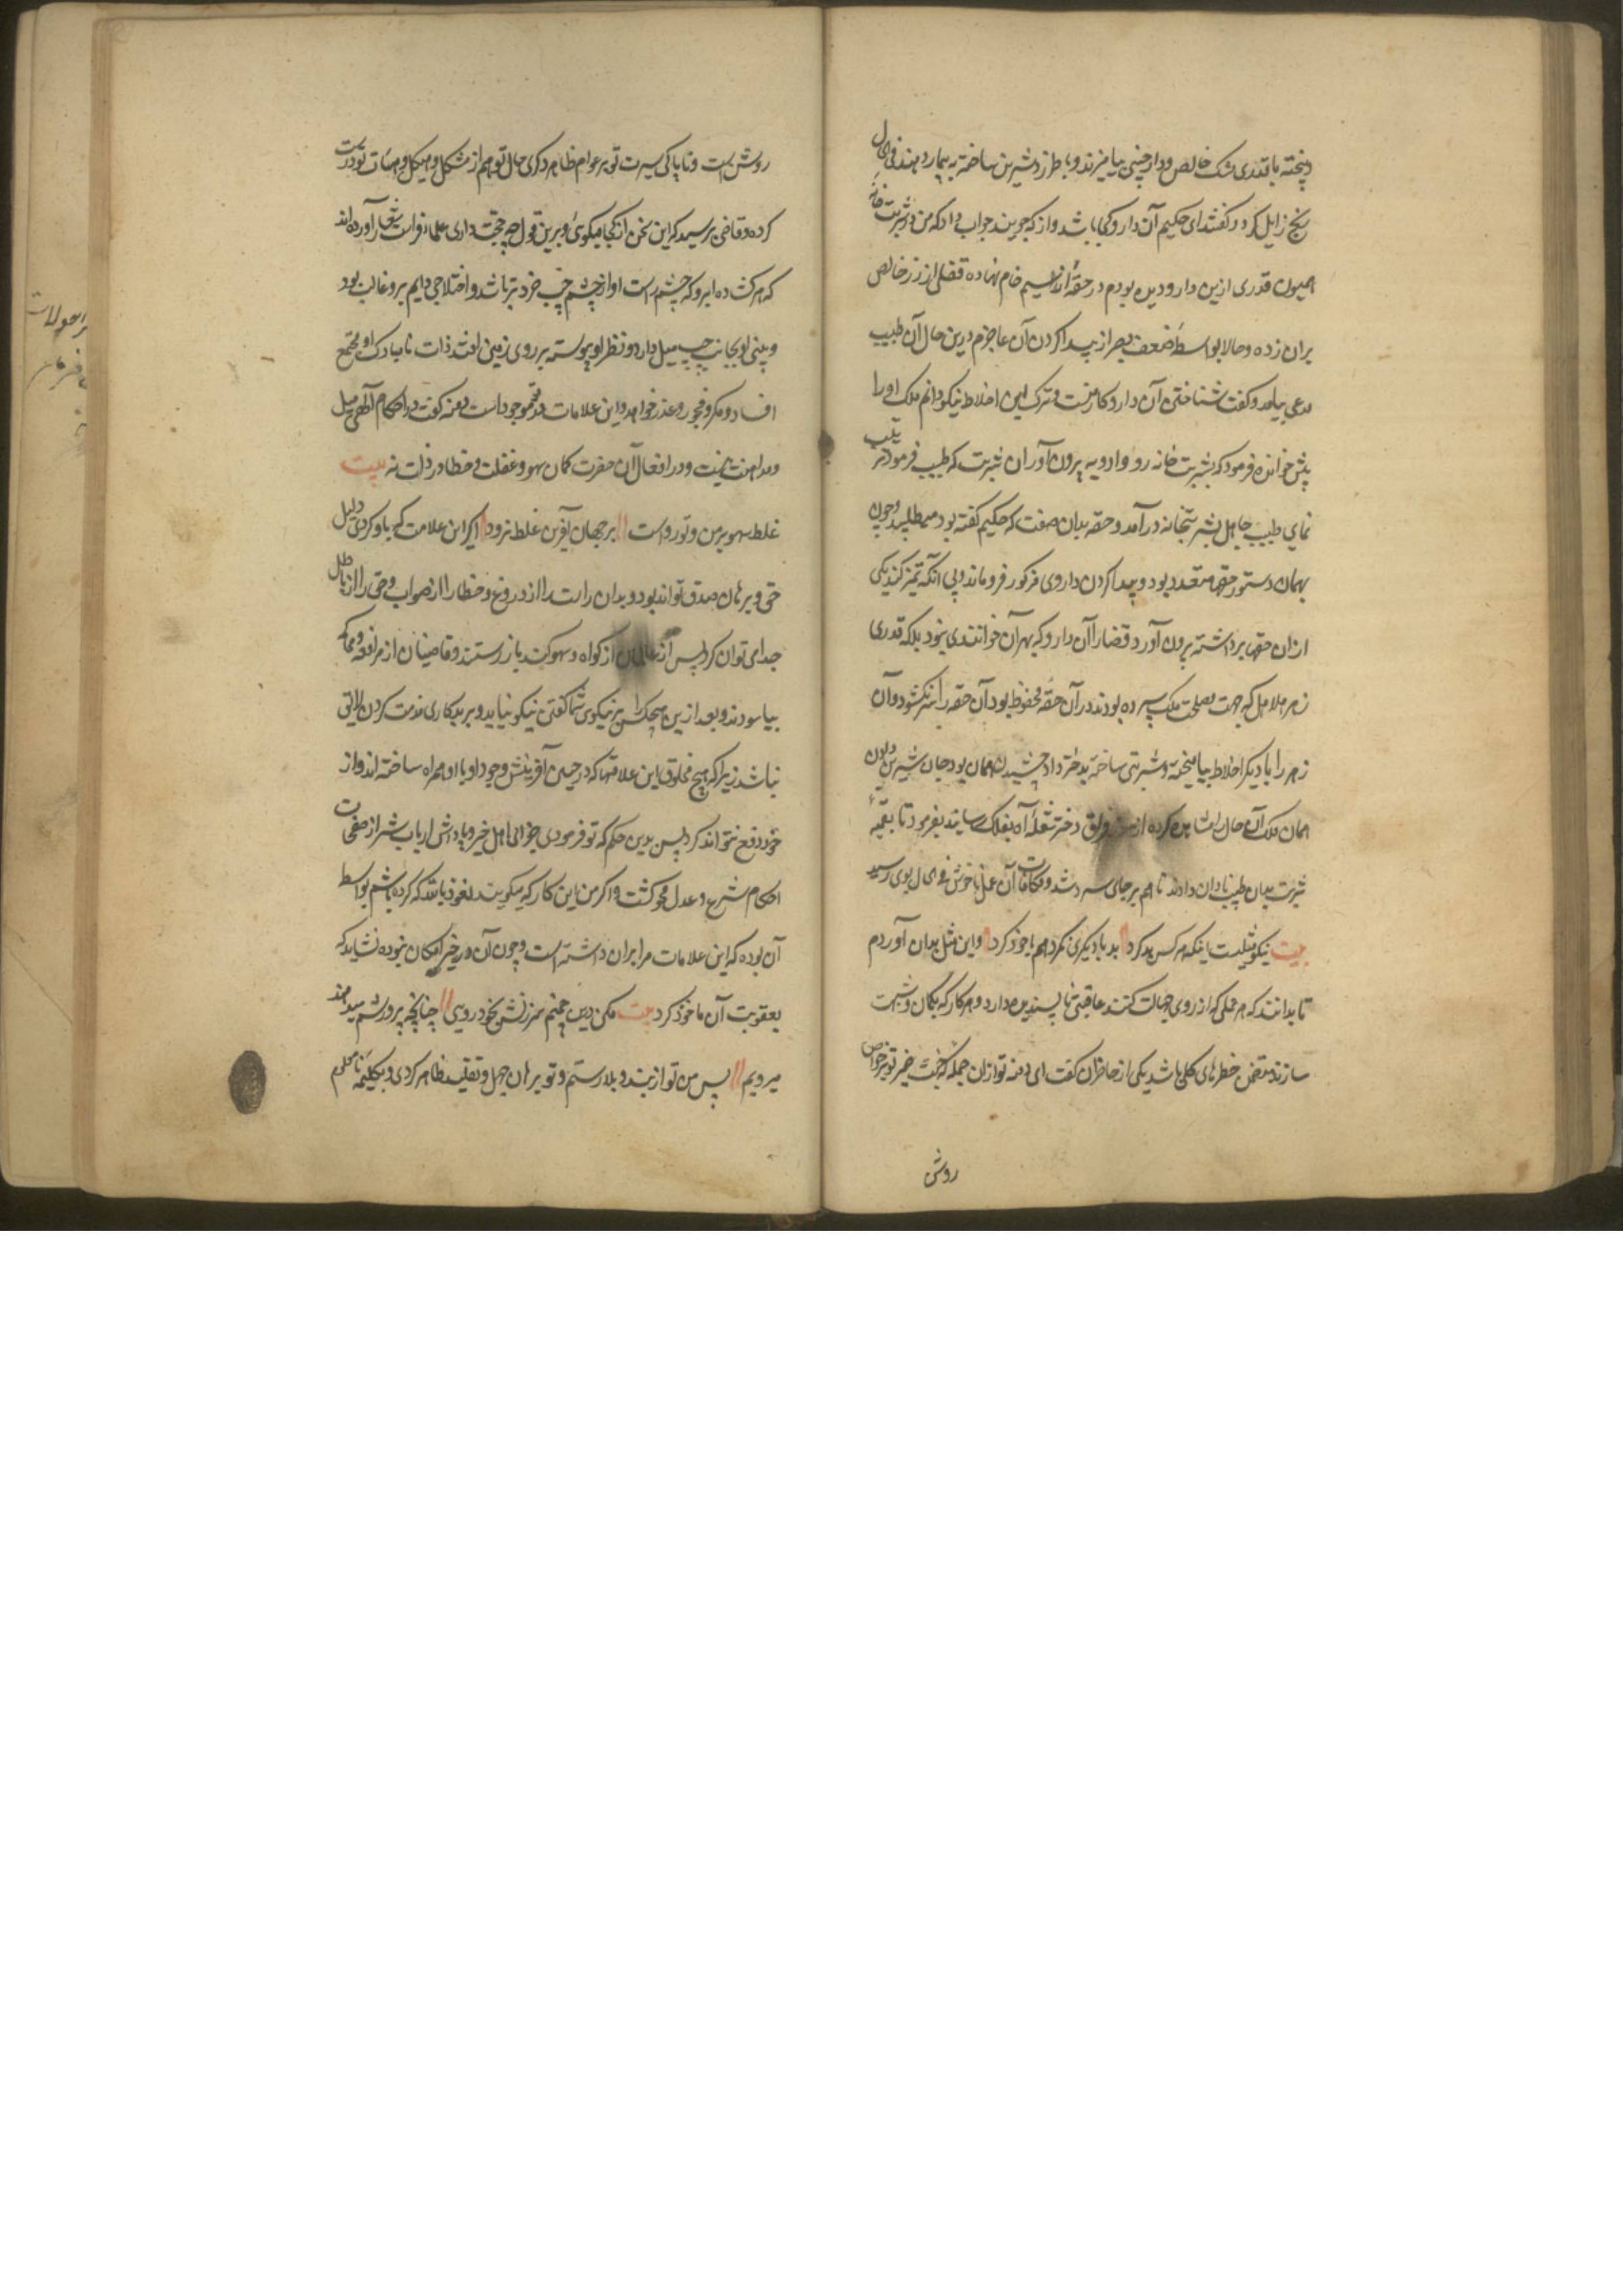 و پخته با قدری مشک خالص و دارچینی بیامیزند و با طبرزد شیرین ساخته به بیمار دهند فی الحال
رنج زایل گردد گفتند ای حکیم آن دارو کجا باشد و از که جویند جواب داد که من در شربت خانه
همیون قدری ازین دارو دیده بودم در حقهٔ از سیم خام نهاده قفلی از زر خالص
بران زده و حالا بواسطهٔ ضعف بصر از پیدا کردن آن عاجزم درین حال آن طبیب
مدعی بیامد و گفت شناختن آن دارو کار منست و ترکیب این اخلاط نیکو دانم ملک او را
پیش خوانده فرمود که بشربت خانه رو و ادویه بیرون آور و آن شربت که طبیب فرموده ترتیب
نمای طبیب جاهل بشربتخانه در آمد و حقه بدان صفت که حکیم گفته بود می‌طلبید و چون
بهمان دستور حقها متعدد بود و پیدا کردن داروی مذکور فرو ماند و بی آنکه تمیز کند یکی
ازان حقها برداشته بیرون آورد قضا را آن دارو که مهران خوانندی نبود بلکه قدری
زهر هلاهل که جهت مصلحت ملک سپرده بودند در آن حقه محفوظ بود آن حقه را سر بگشود و آن
زهر را با دیگر اخلاط بیامیخته و شربتی ساخته بدختر داد چشیدن همان بود و جان شیرین دادن
همان ملک آن حال مشاهده کرده از سوز فراق دختر شعلهٔ آه بفلک رسانید بفرمود تا بقیهٔ
شربت بدان طبیب نادان دادند تا هم بر جای سرد شد و مکافات آن عمل ناخوش فی الحال بوی رسید
بیت نیکو مثلیست اینکه هر کس بد کرد بد با دیگری نکرد هم با خود کرد و این مثل بدان آوردم
تا بدانند که هر عملی که از روی جهالت کنند عاقبتی ناپسندیده دارد و هر کار که بگمان و شبهت
سازند متضمن خطرهای کلی باشد یکی از حاضران گفت ای دمنه تو ازان جمله که خبث ضمیر تو بر خواص
روشن
روشن است و ناپاکی سیرت تو بر عوام ظاهر و کژی حال تو هم از شکل و هیکل و هیأت تو درست
کرده و قاضی پرسید که این سخن از کجا میگوئی و برین قول چه حجت داری علماء فراست شعار آورده‌اند
که هر گشاده ابرو که چشم راست او از چشم چپ خردتر باشد و اختلاجی دایم برو غالب بود
و بینی او بجانب چپ میل دارد و نظر او پیوسته بر روی زمین افتد ذات نامبارک او مجمع
افساد و مکر و فجور و غدر خواهد و این علامات در تو موجود است دمنه گفت در احکام الهی میل
و مداهنت نیست و در افعال آن حضرت گمان سهو و غفلت و خطا و زلت نه بیت
غلط سهو بر من و تو رواست بر جهان آفرین غلط نرود اگر این علامت که یاد کردی دلیل
حق و برهان صدق تواند بود و بدان راست را از دروغ و خطا را از صواب و حق را از باطل
جدا می توان کرد پس از از گواه و سوگند باز رستند و قاضیان از مرافعه و محاکمه
بیاسودند و بعد ازین هیچکس را بر نیکویی ثنا گفتن نیکو نیاید و بر بدکاری مذمت کردن لایق
نباشد زیرا که هیچ مخلوق این علامتها که در حین آفرینش وجود او با او همراه ساخته‌اند از
خود دفع نتواند کرد پس بدین حکم که تو فرمودی جزای اهل خیر و پاداش ارباب شر از صفحات
احکام شرع و عدل محو گشت و اگر من این کار که میگویند نعوذ بالله که کرده باشم بواسطهٔ
آن بوده که این علامات مرا بران داشته است و چون آن در حیز امکان نبوده نشاید که
بعقوبت آن ماخوذ گرد بیت مکن درین چمنم سرزنش بخود رویی چنانچه پرورشم میدهند
میرویم پس من تو از بند و بلا رستم و تو برهان جهل و تقلید ظاهر کردی و بکلیهٔ نامعلوم